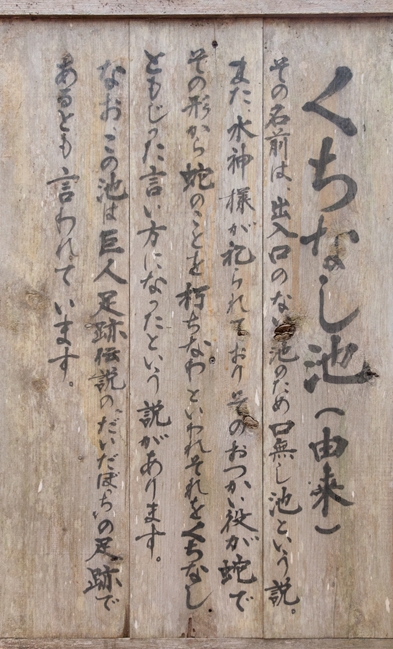 くちなし池(由来)
その名前は、出入口のない池のため口無し池という説。
また、水神様が祀られており そのおつかい役が蛇で
その形から蛇のことを朽ちなわといわれそれをくちなし
ともじった言い方になったという説があります。
なお、この池は巨人足跡伝説の“だいだぼっち”の足跡で
あるとも言われています。